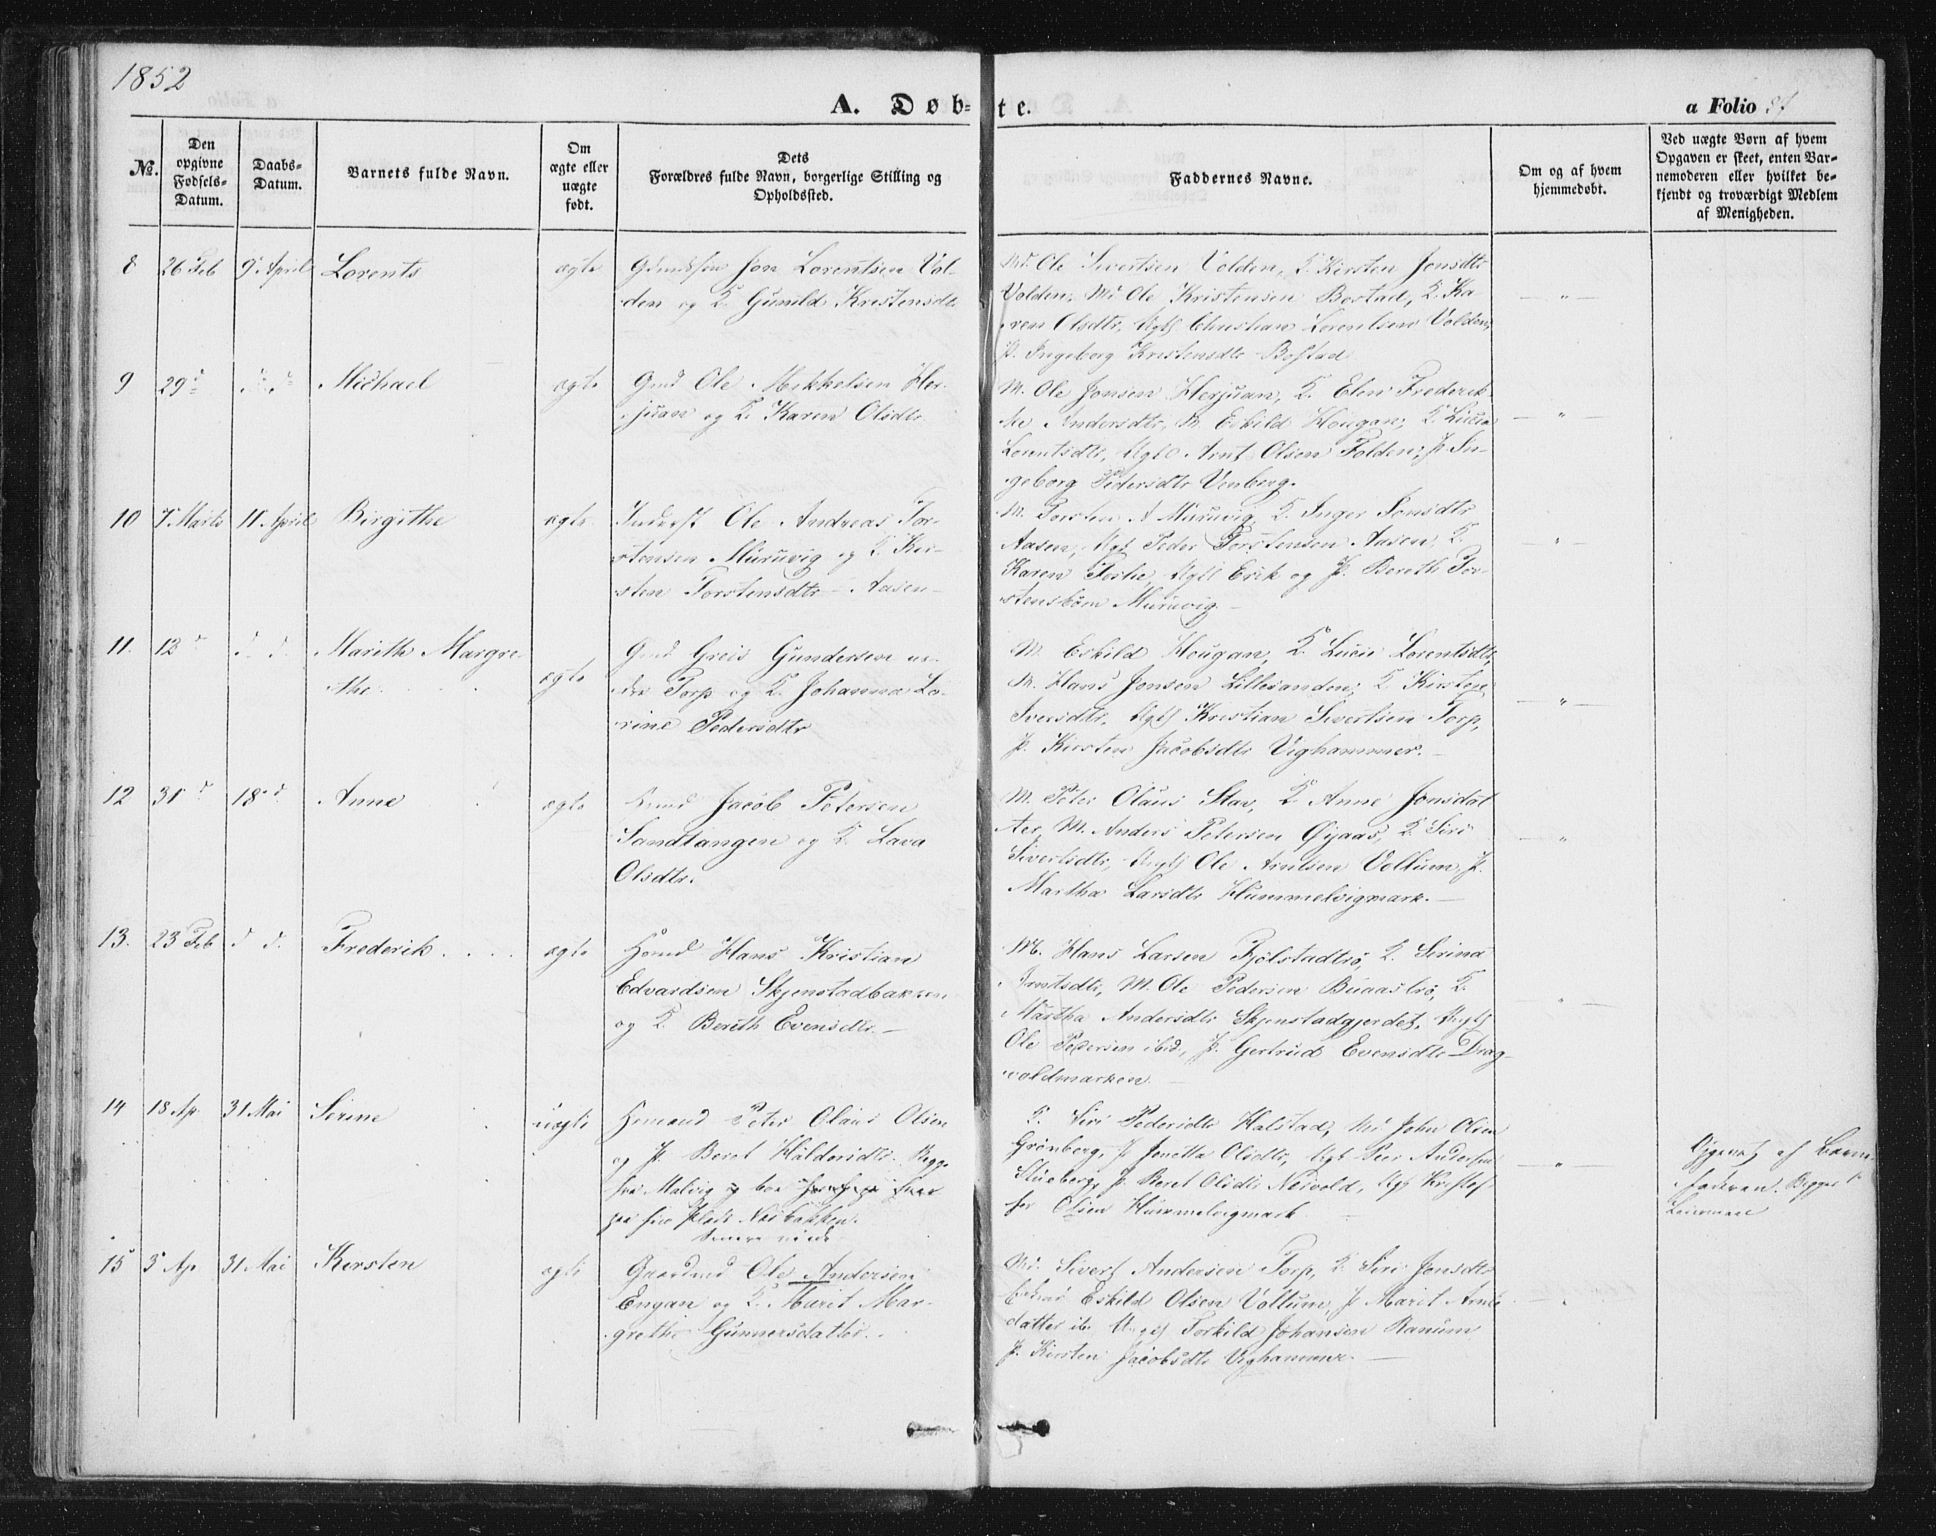 1852
A. Døb-te.
a Folio 81
No.
Den opgivne Fødsels-Datum.
Daabs-Datum.
Barnets fulde Navn.
Om ægte eller uægte født.
Dets Forældres fulde Navn, borgerlige Stilling og Opholdssted.
Faddernes Navne.
Om og af hvem hjemmedøbt.
Ved uægte Børn af hvem Opgaven er skeet, enten Barnemoderen eller hvilket bekjendt og troværdigt Medlem af Menigheden.
8 26 Feb 9 April Lorents ægte
Jon Lorentsen Vol-
den og K. Gunild Kristensdtr
M. Ole Sivertsen Volden, K. Kirsten Jonsdtr
Volden, M. Ole Kristensen Bostad, K. Ka-
ren Olsdtr, Ugk Christian Lorentsen Volden,
P. Ingeborg Kristensdtr Bostad
9 29 d Michael ægte
Gmd Ole Mikkelsen Her-
juan og K. Karen Olsdtr
M. Ole Jonsen Herjuan, K. Elen Frederik-
ke Andersdtr, M. Eskild Hougan, K. Lucie
Lorentsdtr, Ugk Arnt Olsen Folden, P. In-
geborg Pedersdtr Venberg.
10 7 Marts 11 April Birgithe ægte
Inderst Ole Andreas Tor-
stensen Muruvig og K. Kir-
sten Torstensdtr - Aasen -
M. Torsten A Muruvig, K. Inger Jonsdtr
Aasen, Ugk Peder Torstensen Aasen, K.
Karen Ugk Erik og P. Bereth Tor-
stensbörn Muruvig -
11. 12 d d. d. Marith Margre-
the ægte
Gmd Greis Gundersen ne-
dre Torp og K. Johanna Lo-
rine Pedersdtr
M. Eskild Hougan, K. Lucie Lorentsdtr,
M. Hans Jonsen Lillesanden, K. Kirsten
Iversdtr, Ugk Kristian Sivertsen Torp,
P. Kirsten Jacobsdtr Vighammer. -
12 31 d 18 d. Anne ægte
Jacob Petersen
Sandtangen og K. Lava
Olsdtr.
M. Peter Olaus Stav, K. Anne Jonsdat
ter, M. Anders Petersen Øyaas, K. Siri
Sivertsdtr, Ugk Ole Arntsen Voltum, P.
Martha Larsdtr Hummelvigmark. -
13. 23 Feb d d. Frederik ægte
Hmd Hans Kristian
Edvardsen Skjenstadbakken
og K. Bereth Evensdtr. -
M. Hans Larsen Fjölstadtrö, K. Sirina
Arntsdtr, M. Ole Pedersen Buaaströ, K.
Martha Andersdtr Skjenstadgjerdet, Ugk
Ole Pedersen ibid, P. Gertrud Evensdtr Drag-
voldmarken -
14 18 Ap. 31 Mai Serine uægte
Hmand Peter Olaus Olsen
og P. Beret Haldorsdtr. Begge
fra Malvig og boe
paa sin Plads Næsbakken.
K. Siri Pedersdtr Halstad, M John Olsen
Grönberg, P Jonetta Olsdtr, Ugk Peer Andersen
Stueberg, P. Beret Olsdtr Neivold, Ugk Kristof-
fer Olsen Hummelvigmark -
Opgivet af Barne-
faderen. Begges 1
Leiermaal
15 5 Ap 31 Mai Kersten ægte
Gaardmd Ole Andersen
Engan og K. Marit Mar-
grethe Gunnersdatter.
M. Sivert Andersen Torp, K. Siri Jonsdtr
Eskild Olsen Voltum, P Marit Arnts
datter ib. Ugk Torkild Johansen Ranum
P. Kirsten Jacobsdtr Vighammer -